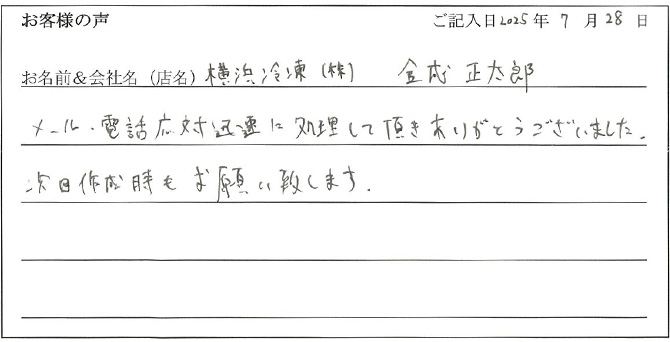 お客様の声 ご記入日2025年 7月28日
お名前&会社名（店名）横浜冷凍（株） 金成 正太郎
メール・電話応対迅速に処理して頂きありがとうございました。
次回作成時もお願い致します。